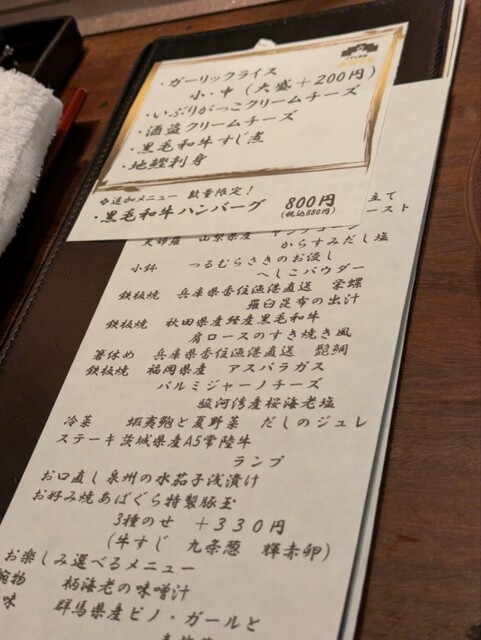 ・ガーリックライス
小・中（大盛＋200円）
・いぶりがっこクリームチーズ
・酒盗クリームチーズ
・黒毛和牛すじ煮
・地鰹刺身
追加メニュー 数量限定！
・黒毛和牛ハンバーグ 800円
(税込880円)
立て
ースト
山梨県産 ヤングコーン
からすみだし塩
小鉢 つるむらさきのお浸し
へしこパウダー
鉄板焼 兵庫県香住漁港直送 栄螺
羅臼昆布の出汁
鉄板焼 秋田県産経産黒毛和牛
肩ロースのすき焼き風
箸休め 兵庫県香住漁港直送 髭鯛
鉄板焼 福岡県産 アスパラガス
パルミジャーノチーズ
駿河湾産桜海老塩
冷菜 蝦夷鮑と夏野菜 だしのジュレ
ステーキ茨城県産A5常陸牛
ランプ
お口直し泉州の水茄子浅漬け
お好み焼あばぐら特製豚玉
3種のせ ＋330円
（牛すじ 九条葱 輝赤卵）
お楽しみ選べるメニュー
椀物 柄海老の味噌汁
味 群馬県産ピノ・ガールと